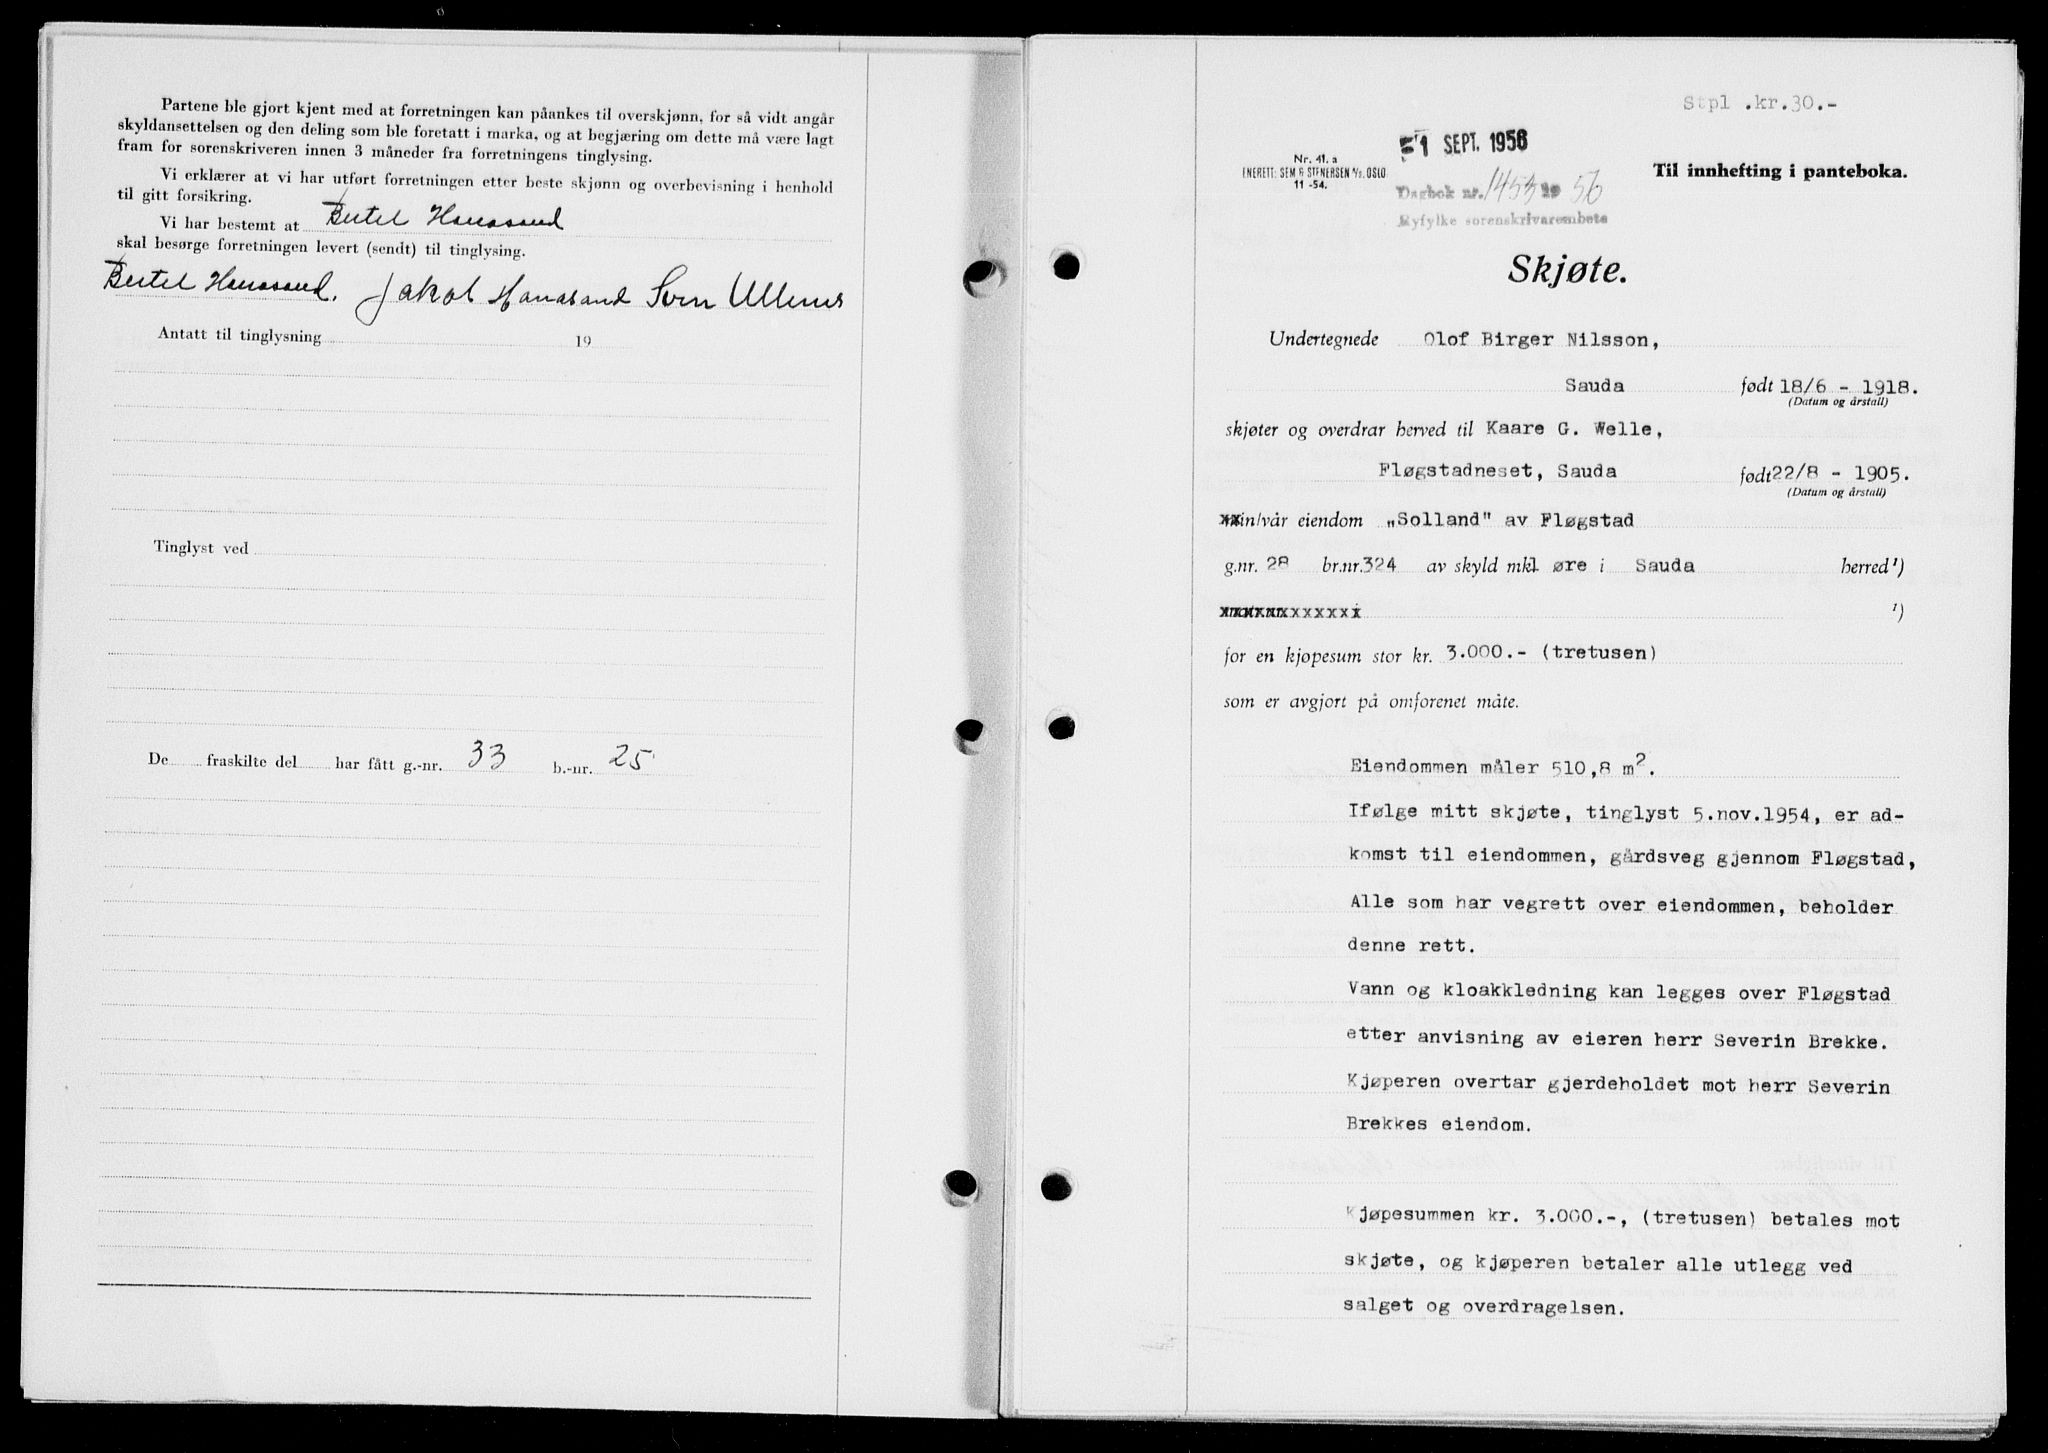 Partene ble gjort kjent med at forretningen kan påankes til overskjønn, for så vidt angår
skyldansettelsen og den deling som ble foretatt i marka, og at begjæring om dette må være lagt
fram for sorenskriveren innen 3 måneder fra forretningens tinglysing.
Vi erklærer at vi har utført forretningen etter beste skjønn og overbevisning i henhold
til gitt forsikring.
Vi har bestemt at Bertel Hanasand
skal besørge forretningen levert (sendt) til tinglysing.
Bertel Hanasand. Jakob Hanasand Svein
Antatt til tinglysning 19
Tinglyst ved
De fraskilte del har fått g.-nr. 33 b.-nr. 25
Stpl .kr.30.-
1 SEPT. 1956
Nr. 41. a
ENERETT: SEM & STENERSEN A/S. OSLO
11 -54.
Til innhefting i panteboka.
Dagbok nr. 1453 19 56
Ryfylke sorenskrivarembete
Skjøte.
Undertegnede Olof Birger Nilsson,
Sauda født 18/6 - 1918.
(Datum og årstall)
skjøter og overdrar herved til Kaare G. Welle,
Fløgstadneset, Sauda født 22/8 - 1905.
(Datum og årstall)
xxin/vår eiendom „Solland" av Fløgstad
g.nr. 28 br.nr. 324 av skyld mkl øre i Sauda herred ¹)
¹)
for en kjøpesum stor kr. 3.000.- (tretusen)
som er avgjort på omforenet måte.
Eiendommen måler 510,8 m².
Ifølge mitt skjøte, tinglyst 5.nov.1954, er ad-
komst til eiendommen, gårdsveg gjennom Fløgstad,
Alle som har vegrett over eiendommen, beholder
denne rett.
Vann og kloakkledning kan legges over Fløgstad
etter anvisning av eieren herr Severin Brekke.
Kjøperen overtar gjerdeholdet mot herr Severin
Brekkes eiendom.
Kjøpesummen kr. 3.000.-, (tretusen) betales mot
skjøte, og kjøperen betaler alle utlegg ved
salget og overdragelsen.